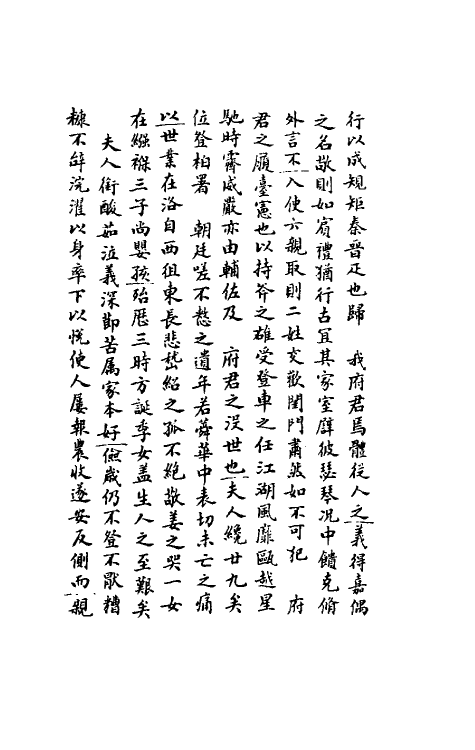 行以成規矩秦晉疋也歸　我府君焉體從人之義得嘉偶
之名敬則如賓禮猶行古宜其家室辟彼瑟琴況中饋克脩
外言不入使六親取則二姓交歡閨門肅然如不可犯　府
君之履臺憲也以持斧之雄受登車之任江湖風靡甌越星
馳時霽威嚴亦由輔佐及　府君之沒世也夫人纔廿九矣
位登柏署　朝廷嗟不憖之遺年若蕣華中表切未亡之痛
以世業在洛自西徂東長悲嵇紹之孤不絕敬姜之哭一女
在繈褓三子尚嬰孩殆歷三時方誕季女盖生人之至艱矣
　夫人銜酸茹泣義深節苦属家本好儉歲仍不登不厭糟
糠不辞浣濯以身率下以悅使人屢報農收遂安反側而親